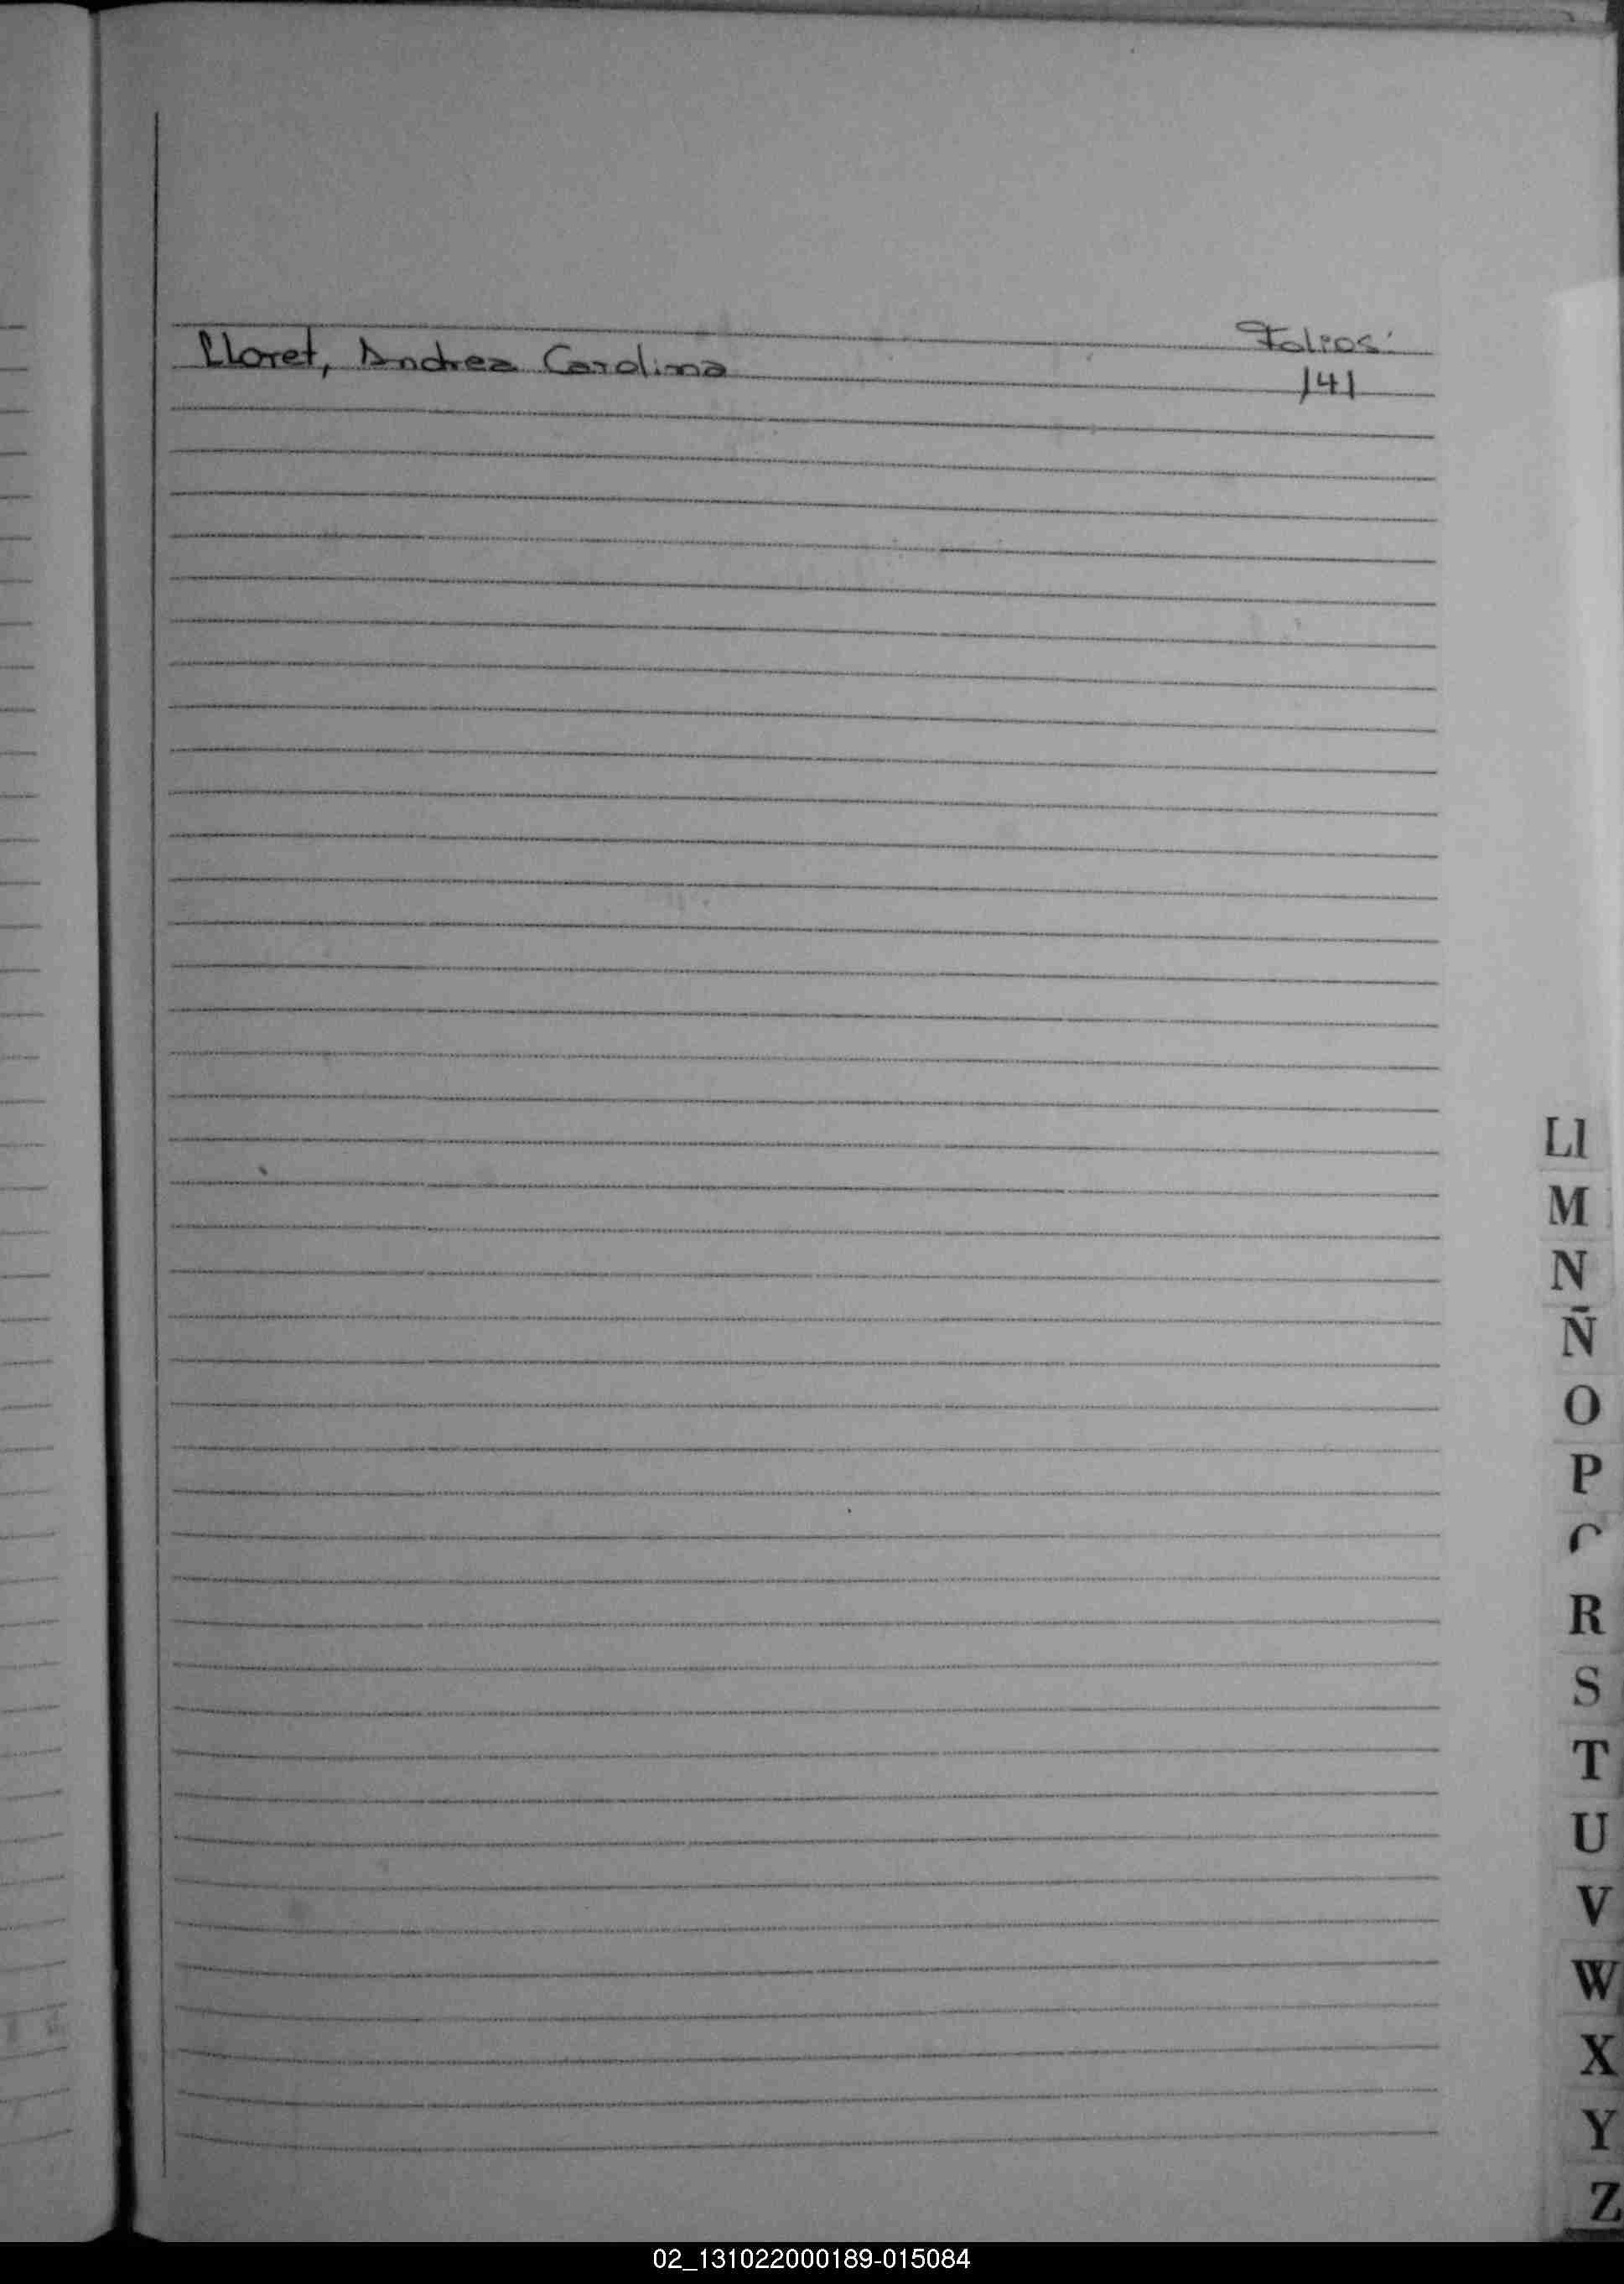 Folios:
Lloret, Andrea Carolina
141
Ll
M
N
Ñ
O
P
R
S
T
U
V
W
X
Y
Z
02_131022000189-015084